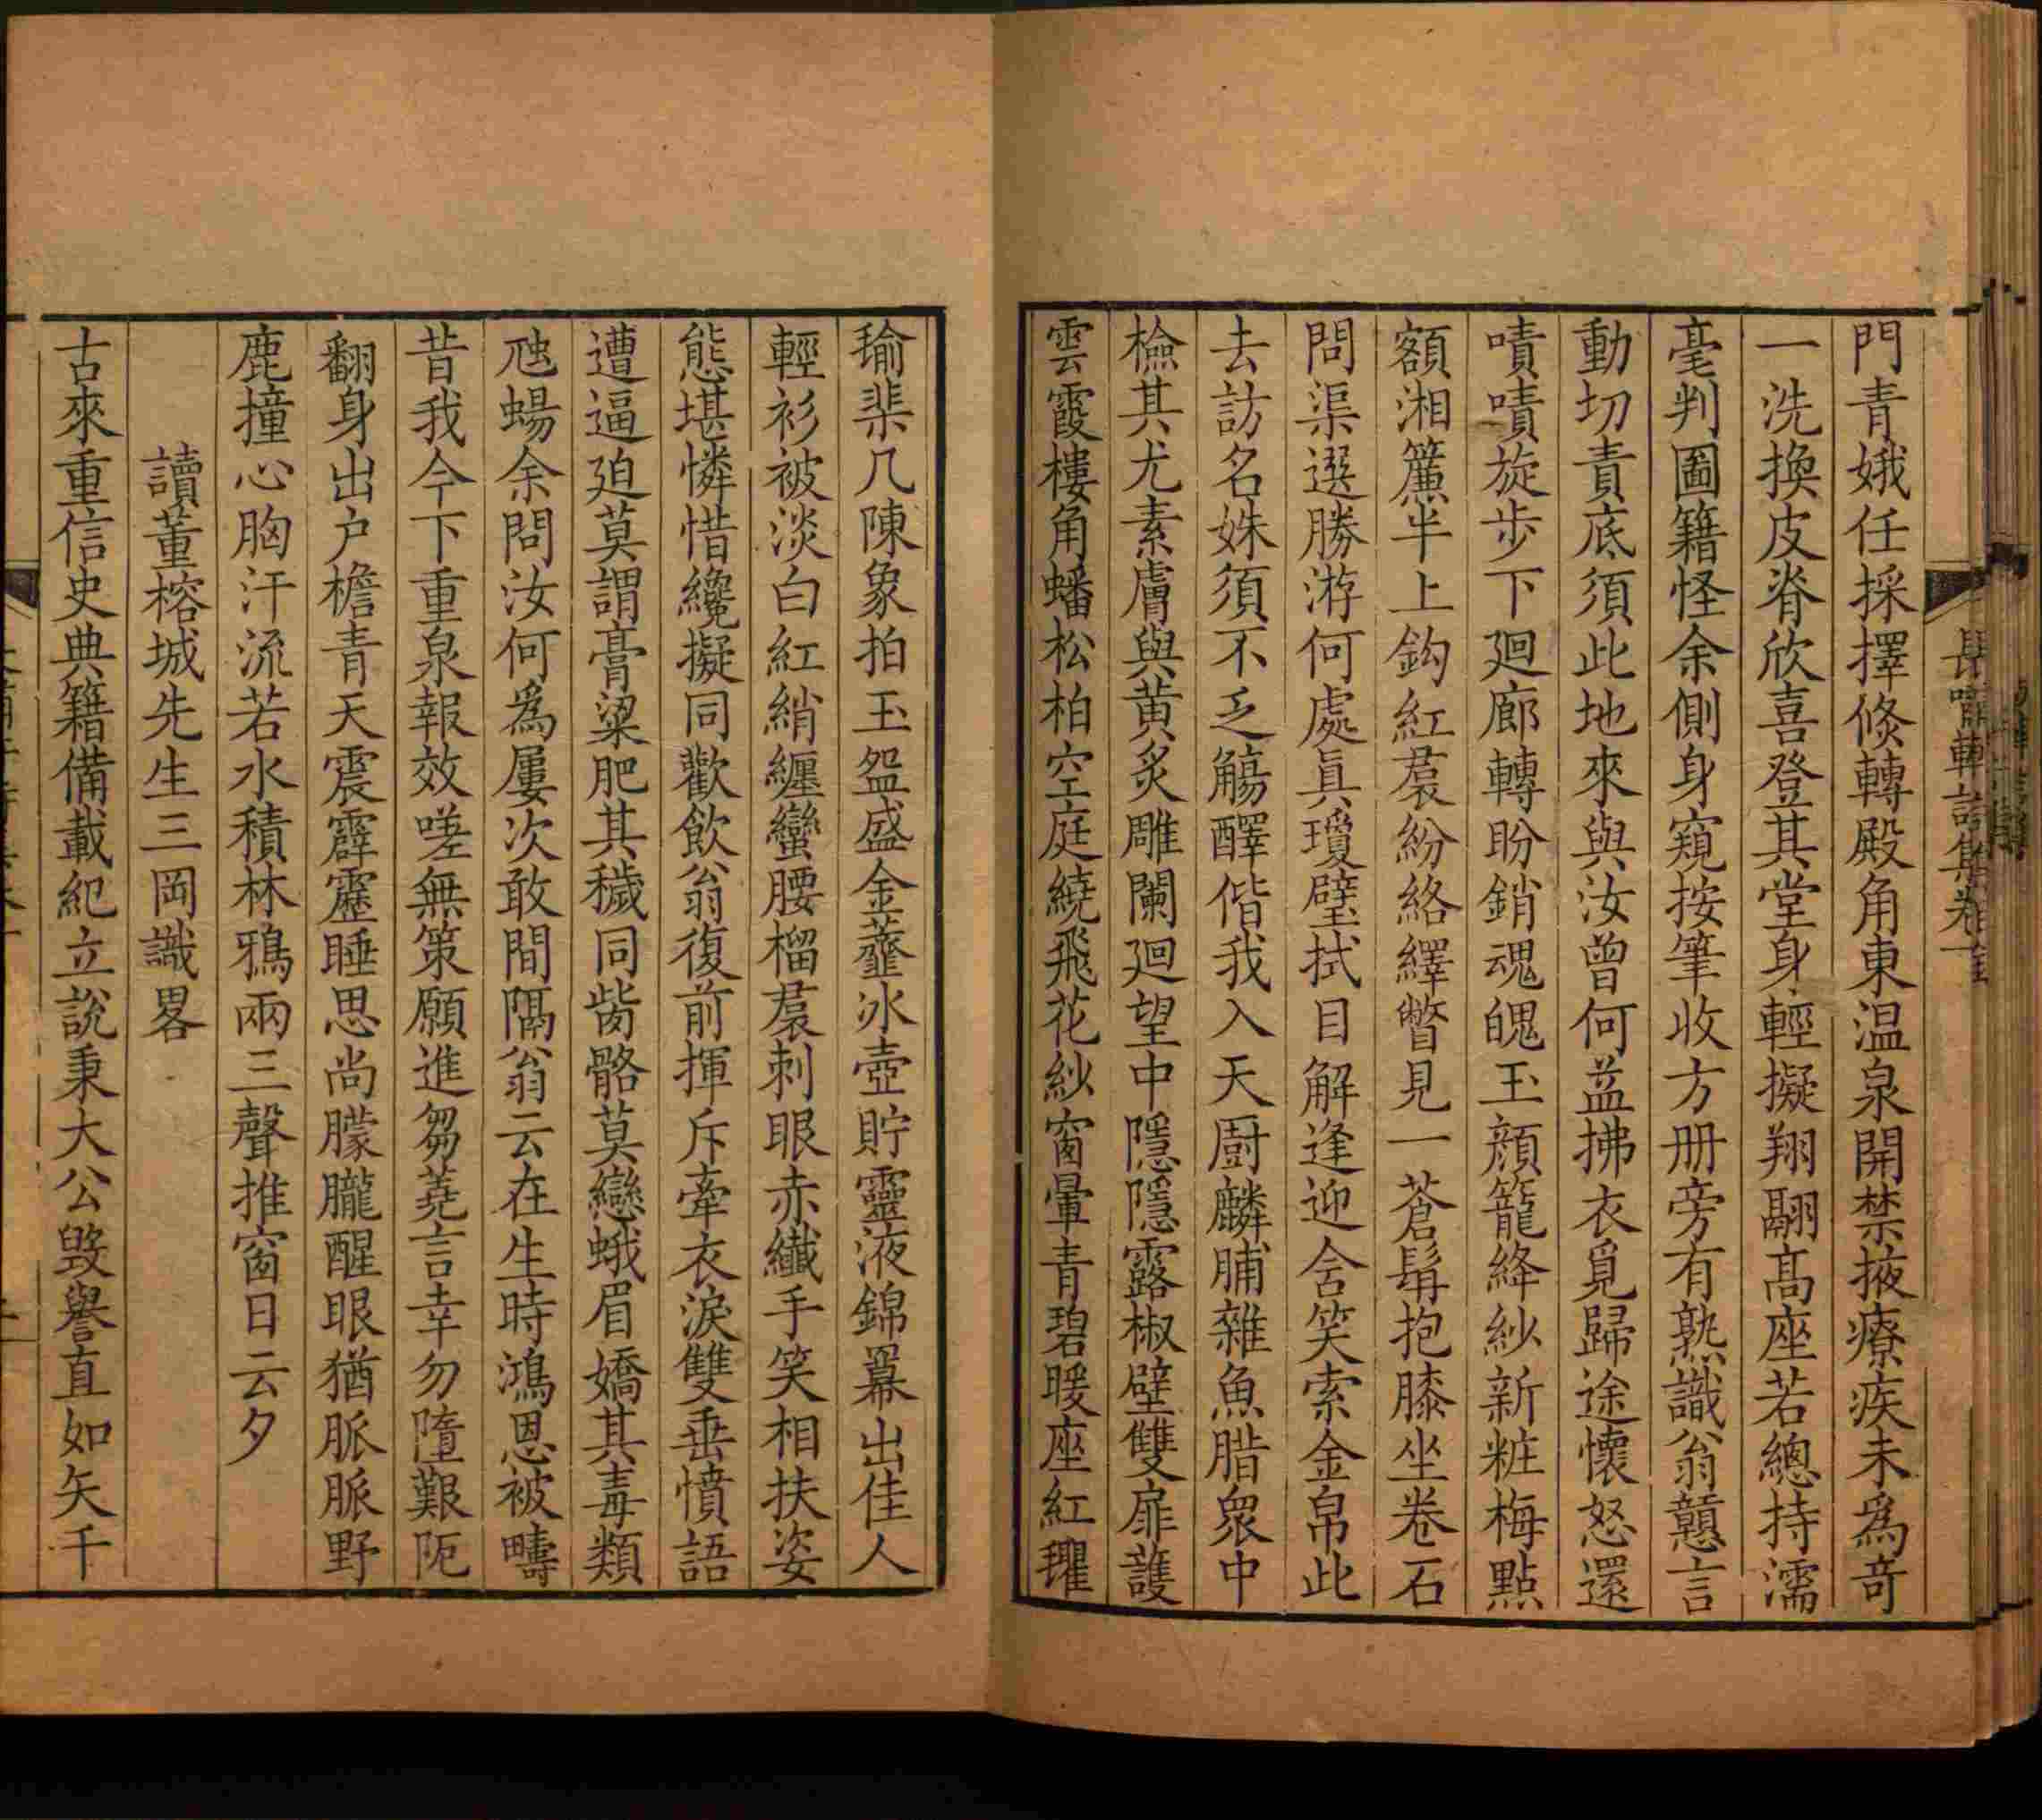 門青娥任採擇倏轉殿角東温泉開禁掖療疾未爲竒
一洗換皮脊欣喜登其堂身輕擬翔翮髙座若總持濡
毫判圖籍怪余側身窺按筆收方册旁有熟識翁戇言
動切責底須此地來與汝曾何益拂衣覓歸途懷怒還
嘖嘖旋步下廻廊轉盼銷魂魄玉顔籠絳紗新粧梅點
額湘簾半上鈎紅裠紛絡繹瞥見一蒼髯抱膝坐卷石
問渠選勝游何處眞瓊璧拭目解逢迎含笑索金帛此
去訪名姝須不乏觴醳偕我入天厨麟脯雜魚腊衆中
檢其尤素膚與黄炙雕闌廻望中隱隱露椒壁雙扉䕶
雲霞樓角蟠松柏空庭繞飛花紗窗暈青碧暖座紅㼇
瑜棐几陳象拍玉盌盛金虀冰壺貯靈液錦羃出佳人
輕衫被淡白紅綃纏蠻腰榴裠刺眼赤纎手笑相扶姿
態堪憐惜纔擬同歡飲翁復前揮斥牽衣淚雙垂憤語
遭逼迫莫謂膏粱肥其穢同胔骼莫戀蛾眉嬌其毒類
虺蜴余問汝何爲屢次敢間隔翁云在生時鴻恩被疇
昔我今下重泉報效嗟無策願進芻蕘言幸勿墮艱阨
翻身出户檐青天震霹靂睡思尚朦朧醒眼猶脈脈野
鹿撞心胸汗流若水積林鴉兩三聲推窗日云夕
讀董榕城先生三岡識畧
古來重信史典籍備載紀立說秉大公毁譽直如矢千